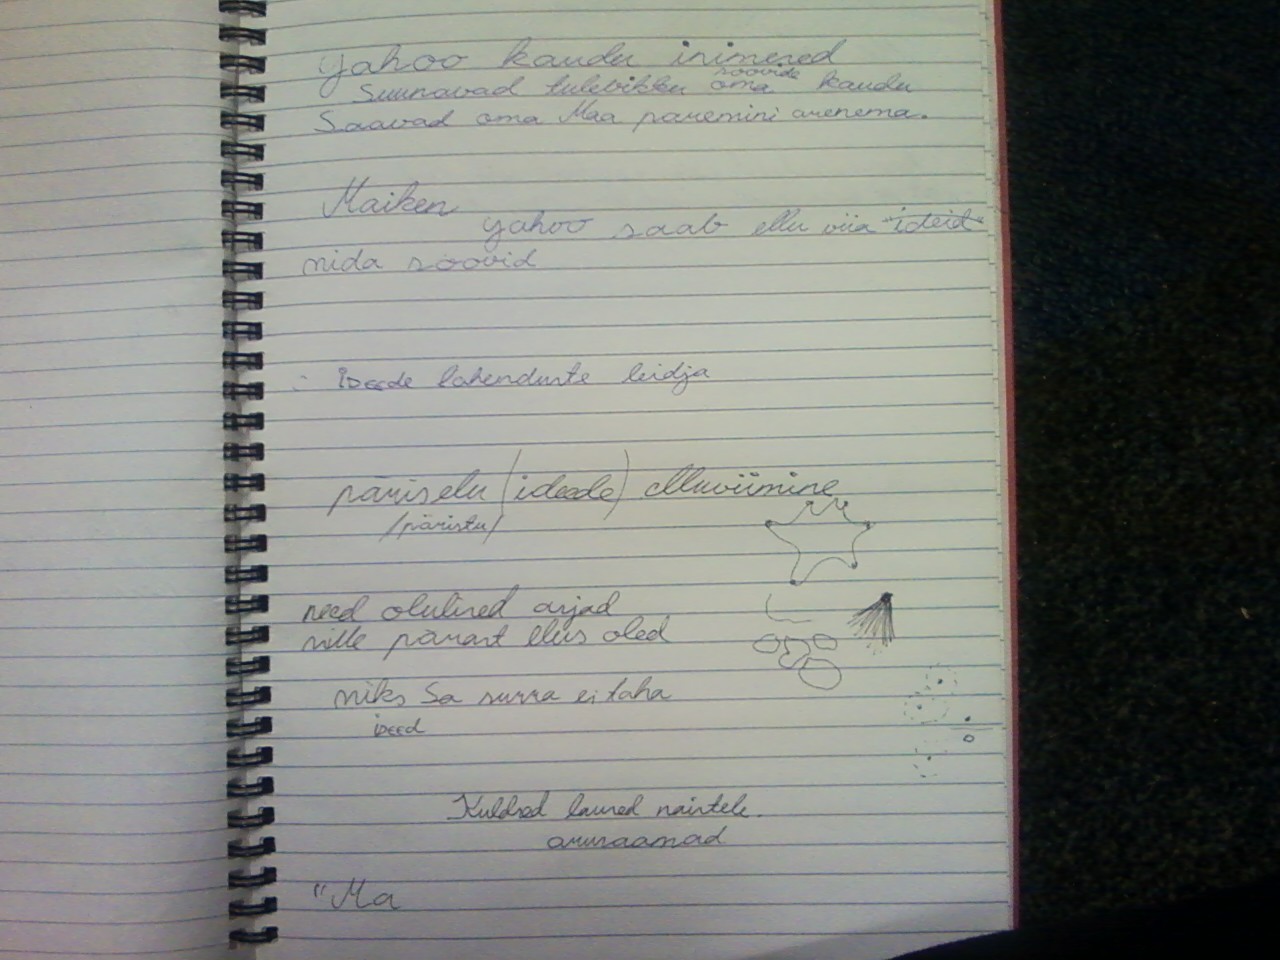 yahoo kaudu inimesed
suunavad tulevikku oma soovide kaudu
Saavad oma Maa paremini arenema.
Maiken
yahoo saab ellu viia "ideid"
mida soovid
ideede lahenduste leidja
päriselu (ideede) elluviimine
/päristu/
need olulised asjad
mille pärast elus oled
miks Sa surra ei taha
ideed
Kuldsed laused naistele.
arusaamad
"Ma